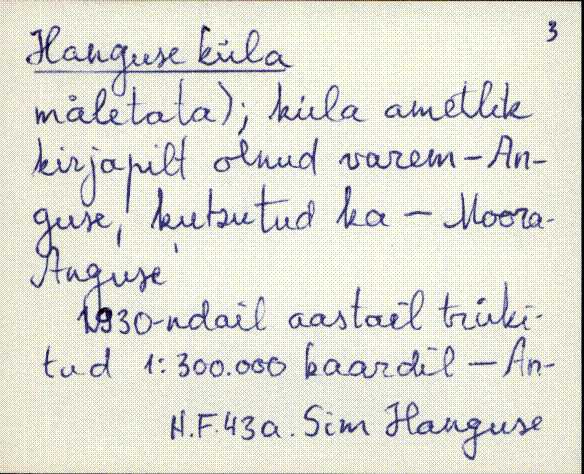 3
Hanguse küla
måletata); küla ametlik
kirjapilt olnud varem – An-
guse, kutsutud ka – Moora-
Anguse
1930-ndail aastail trüki-
tud 1:300.000 kaardil – An-
H.F.43a. Sim Hanguse